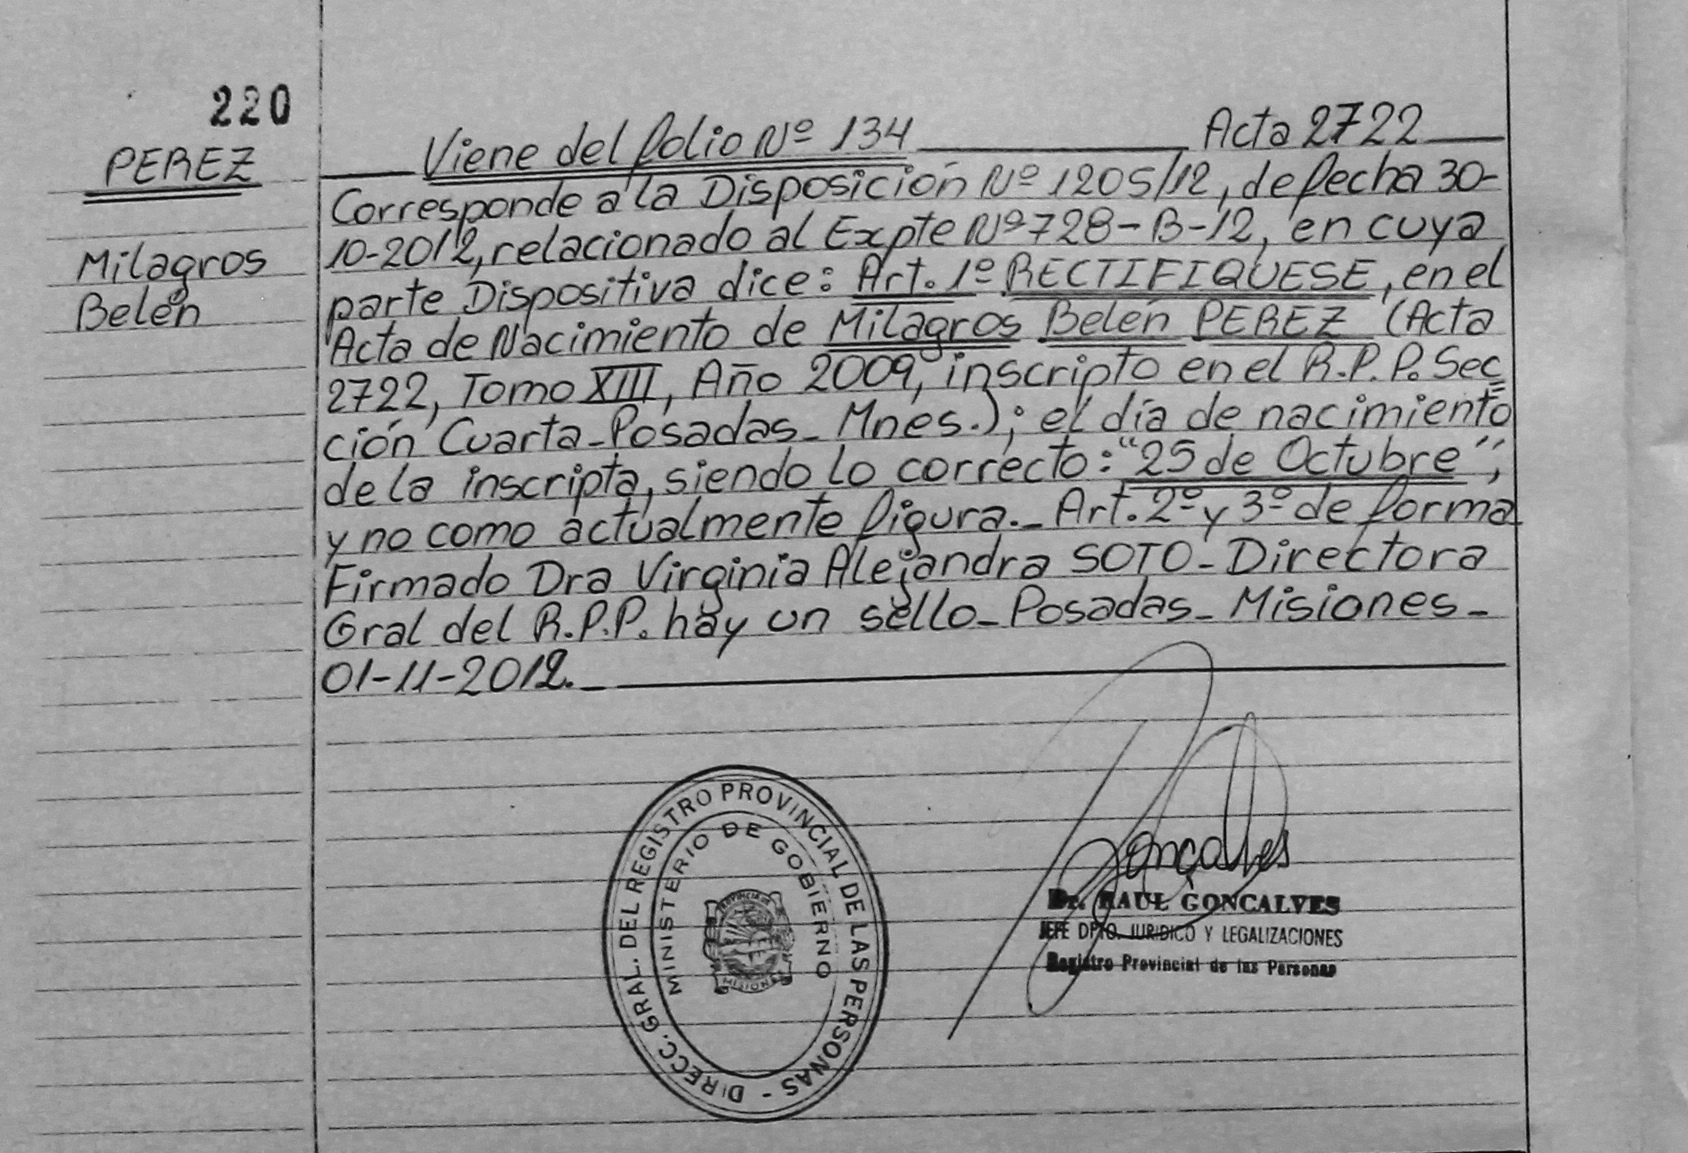 220
PEREZ
Milagros
Belén
Viene del folio Nº 134 Acta 2722
Corresponde a la Disposición Nº 1205/12, de fecha 30-
10-2012, relacionado al Expte Nº 728-B-12, en cuya
parte Dispositiva dice: Art. 1º RECTIFIQUESE, en el
Acta de Nacimiento de Milagros Belén PEREZ (Acta
2722, Tomo XIII, Año 2009, inscripto en el R.P.P. Sec=
ción Cuarta-Posadas-Mnes.); el día de nacimiento
de la inscripta, siendo lo correcto: "25 de Octubre",
y no como actualmente figura.- Art. 2º y 3º de forma
Firmado Dra Virginia Alejandra SOTO-Directora
Gral del R.P.P. hay un sello-Posadas-Misiones-
01-11-2012.-
DIRECC. GRAL. DEL REGISTRO PROVINCIAL DE LAS PERSONAS -
MINISTERIO DE GOBIERNO
PROVINCIA DE
MISIONES
Gonçalves
Dr. RAUL GONCALVES
JEFE DPTO. JURIDICO Y LEGALIZACIONES
Registro Provincial de las Personas